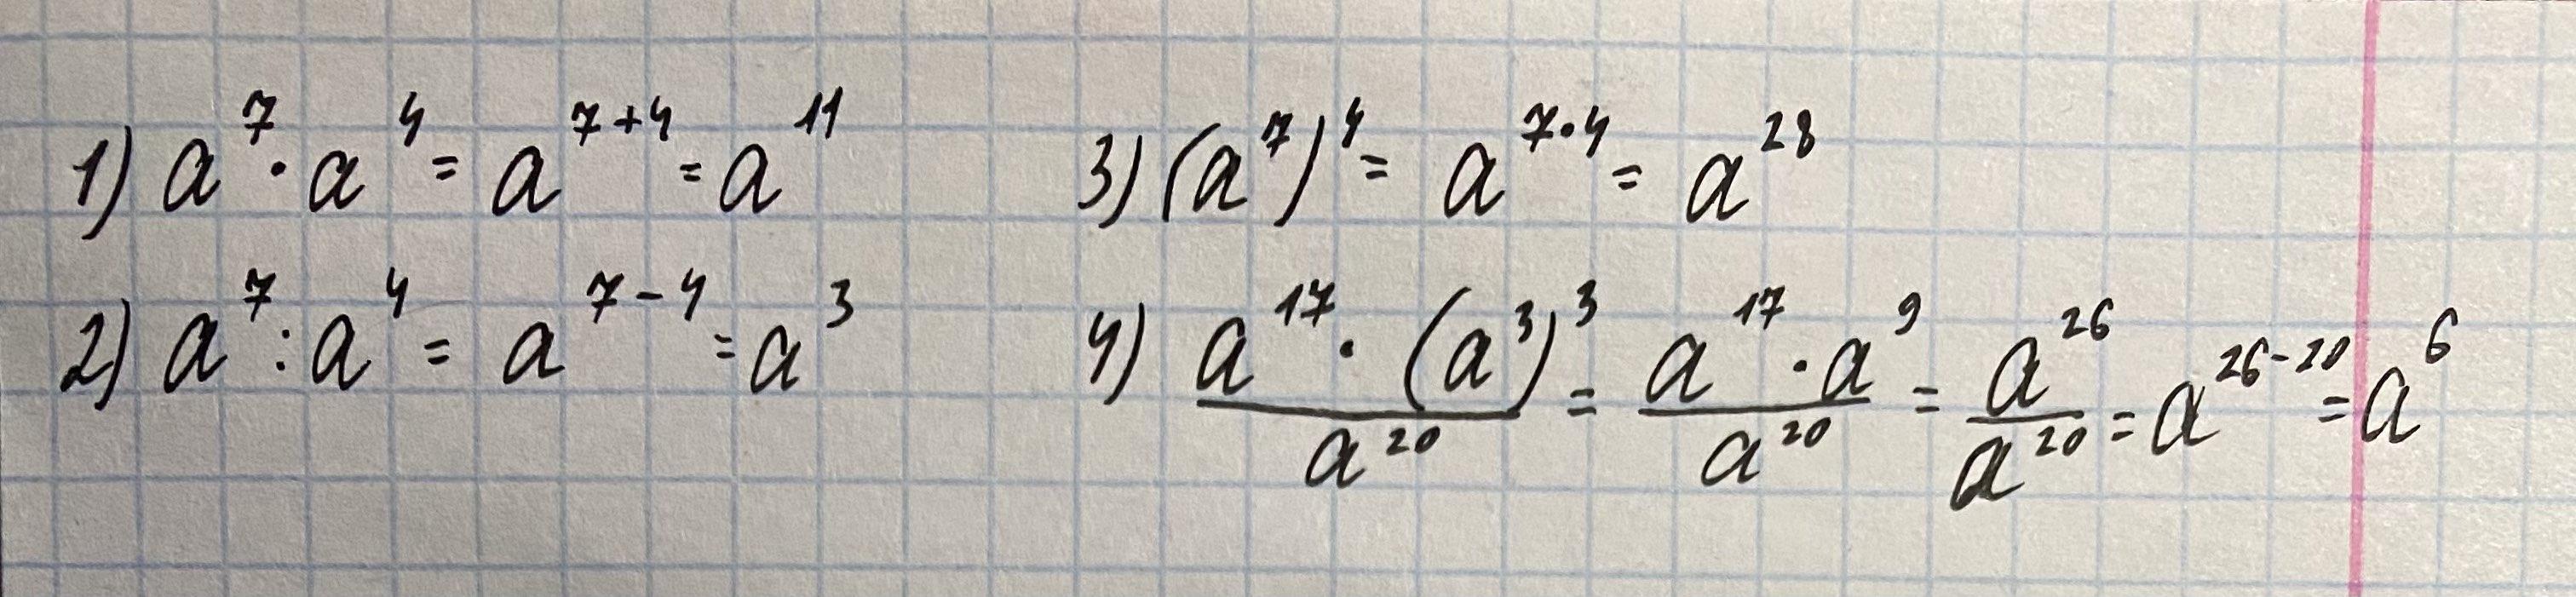 1) a⁷ · a⁴ = a⁷⁺⁴ = a¹¹
2) a⁷ : a⁴ = a⁷⁻⁴ = a³
3) (a⁷)⁴ = a^{7·4} = a²⁸
4) \frac{a^{17} · (a^3)^3}{a^{20}} = \frac{a^{17} · a^9}{a^{20}} = \frac{a^{26}}{a^{20}} = a^{26-20} = a^6